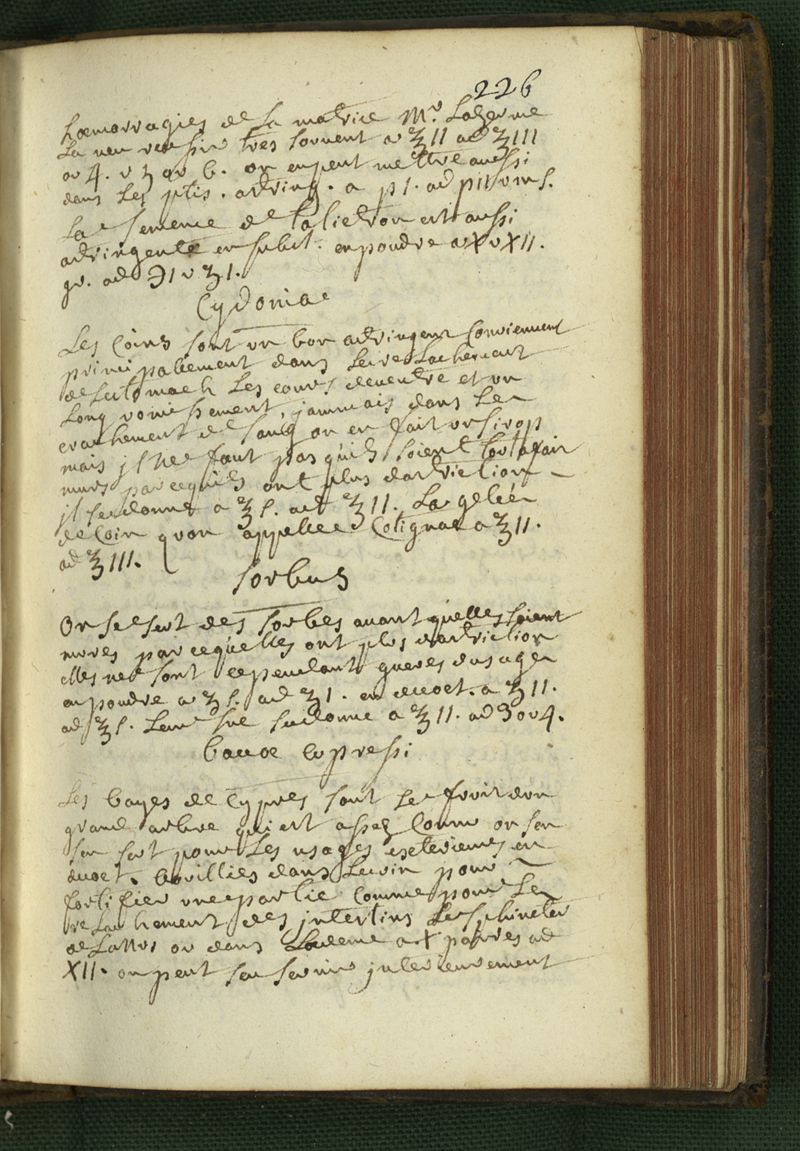 226
hœmorragies de la matrice Mr. Lazerme
La veu reussir tres souvent a ʒ II ad ʒ III
ou 4. v ʒ ou 6. on en peut mettre aussi
dans les ptis. adtring. a p I. ad p II vins.
La semence de talictron est aussi
adtringente en subst. en poudre a X v XII.
gr. ad ℈ I v ʒ I.
Cydonia
Les Coins sont un bon adtringent Conviennent
principalement dans le relachement
de lestomach les cours de ventre et un
long vomissement, jammais dans le
crachement de sang on en fait un sirop
mais jl ne faut pas quils soient tout a fait
murs parcequils ont plus dadtriction
jl se donne a ℥ s. ad ℥ II. La gelée
de Coin quon appelle Cotignac a ℥ II.
ad ℥ III.
Sorbus
On se sert des sorbes avant quelles soient
mures parcequelles ont plus dadtriction
elles ne sont cependant gueres dusage
en poudre a ʒ s. ad ʒ I. en decoct. a ʒ II.
ad ℥ s. Leur suc se donne a ℥ II. ad 3 ou 4.
baccæ Cupressi
Les bayes de Cypres sont le fruit dun
grand arbre qui est assez Connu on sen
sert pour les usages exterieurs en
decoct. bovillies dans le vin pour
fortifier une partie Comme pour le
relachement des jntestins le sphincter
de lanus ou dans a X paires ad
XII. on peut sen servir jnterieurement